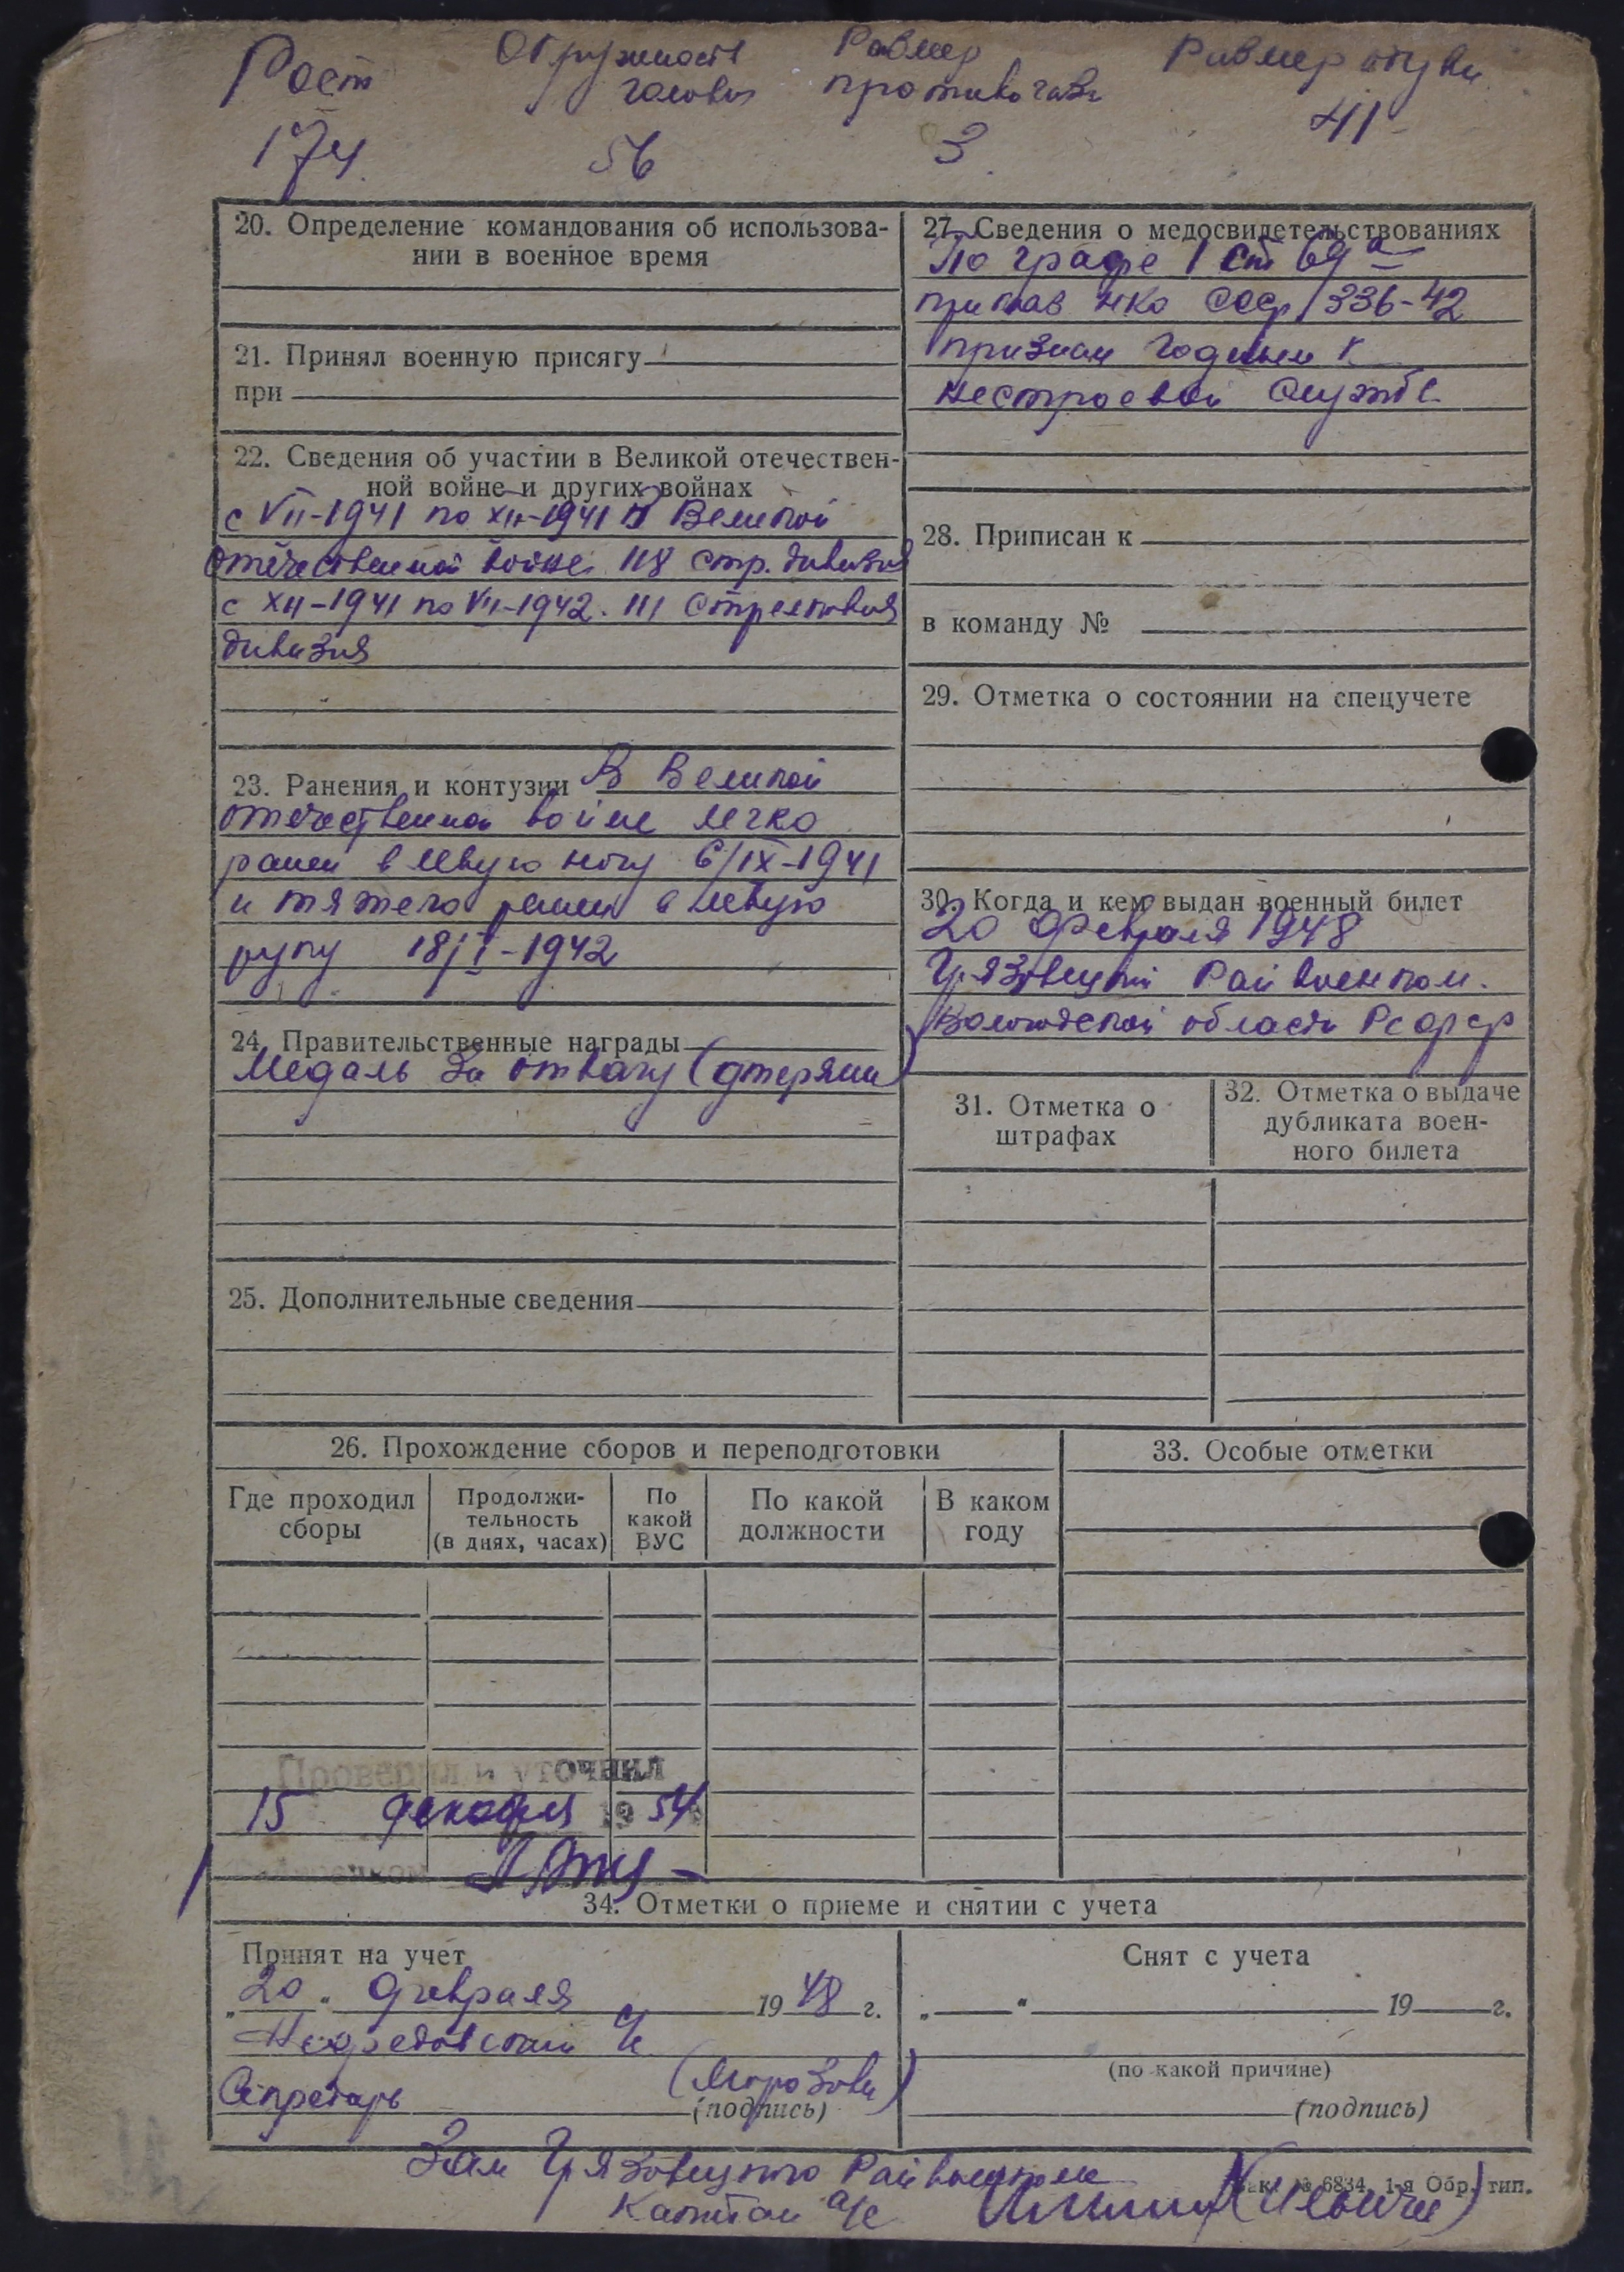 Рост Окружность Размер Размер обуви
головы противогаза
174 56 3 41
20. Определение командования об использова-
нии в военное время
21. Принял военную присягу
при
22. Сведения об участии в Великой отечествен-
ной войне и других войнах
с VII-1941 по XII-1941 В Великой
отечественной войне 118 стр. дивизия
с XII-1941 по VII-1942. 111 Стрелковая
дивизия
23. Ранения и контузии В Великой
отечественной войне легко
ранен в левую ногу 6/IX-1941
и тяжело ранен в левую
руку 18/I-1942
24. Правительственные награды
Медаль За отвагу (утеряна)
25. Дополнительные сведения
27. Сведения о медосвидетельствованиях
По графе 1 ст 69а
приказ НКО СССР 336-42
признан годным к
нестроевой службе
28. Приписан к
в команду №
29. Отметка о состоянии на спецучете
30. Когда и кем выдан военный билет
20 февраля 1948
Грязовецкий Райвоенком.
Вологодской области РСФСР
31. Отметка о
штрафах
32. Отметка о выдаче
дубликата воен-
ного билета
26. Прохождение сборов и переподготовки
Где проходил
сборы
Продолжи-
тельность
(в днях, часах)
По
какой
ВУС
По какой
должности
В каком
году
33. Особые отметки
Проверил и уточнил
15 декабря 1954
34. Отметки о приеме и снятии с учета
Принят на учет
„20“ февраля 1948 г.
Секретарь (Морозова)
(подпись)
Снят с учета
„ “ 19 г.
(по какой причине)
(подпись)
Зам Грязовецкого Райвоенкома
Капитан а/с
Зак. № 6834. 1-я Обр. тип.